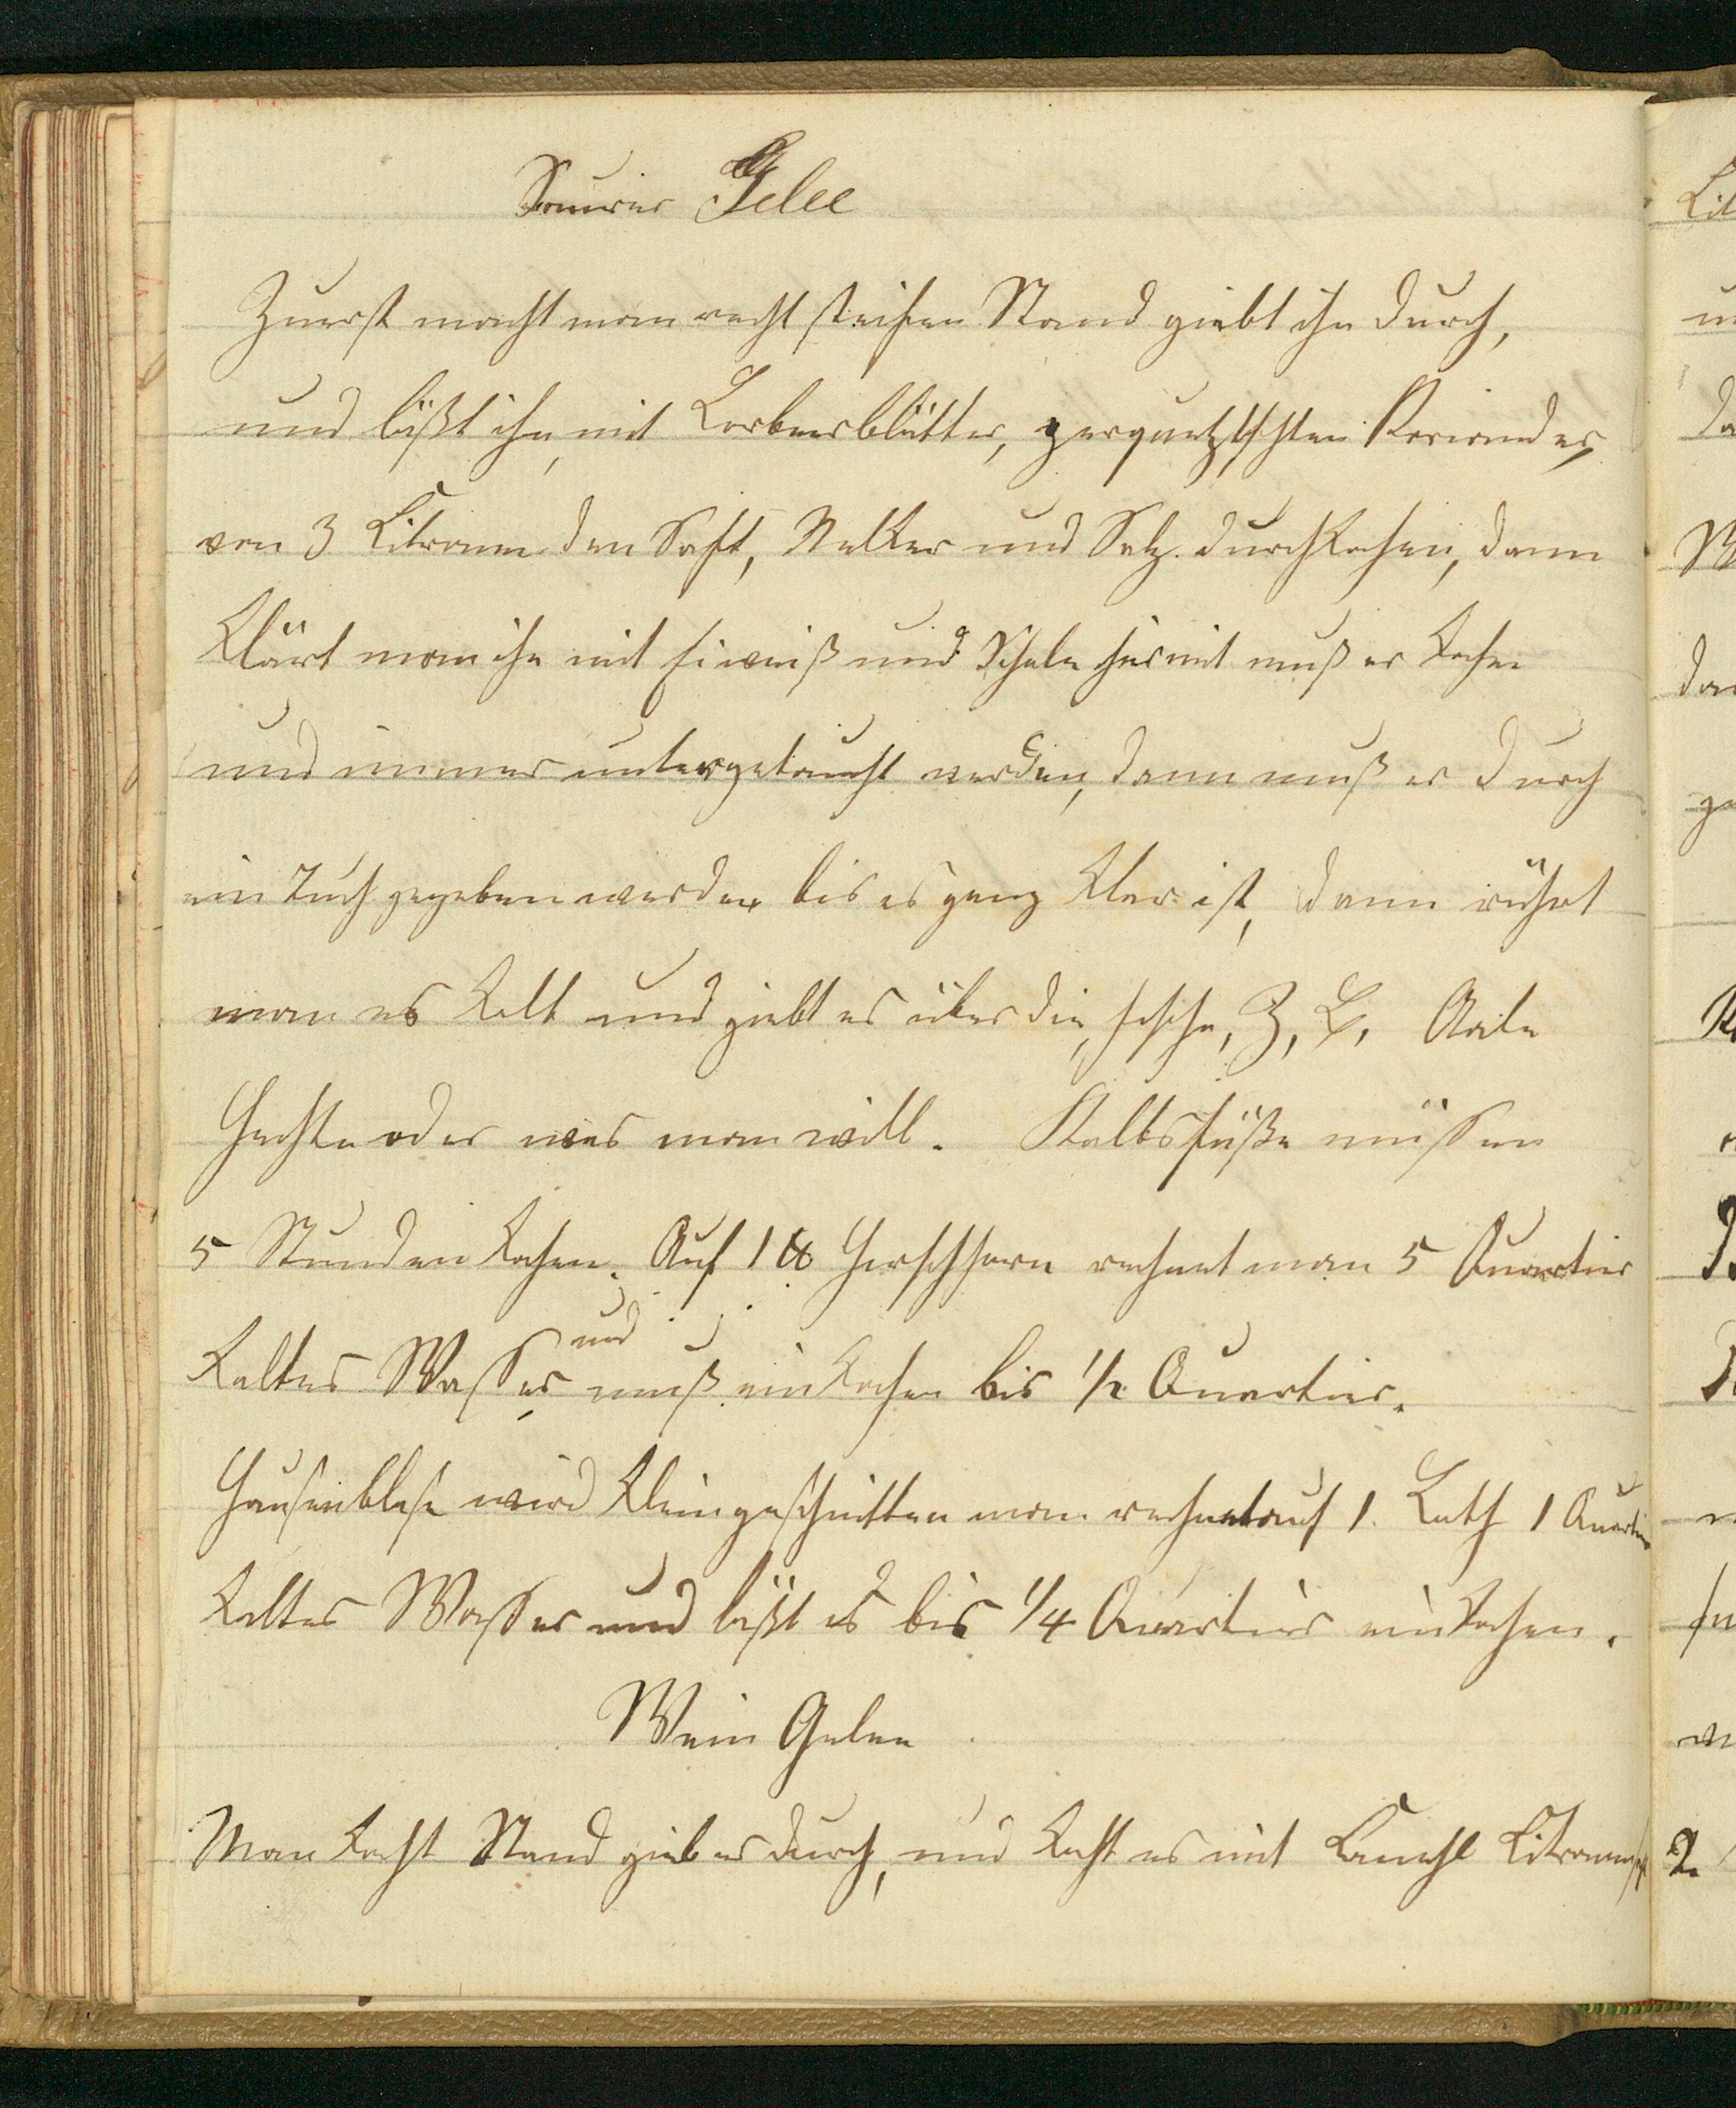 Saurer Gelee
Zuerst macht man recht steifen Stand giebt ihn durch,
und läßt ihn, mit Lorbeerblätter, zerquetzschten Koriander,
von 3 Citronen den Saft, Nelken und Salz durchkochen, dann
klärt man ihn mit Eiweiß und Schale hiermit muß er kochen
und immer untergetaucht werden, dann muß er durch
ein Tuch gegeben werden bis es ganz klar ist, dann rührt
man es kalt und giebt es über die, Fische, Z, B, Aale
Hechte oder was man will. Kalbsfüße müssen
5 Stunden kochen. Auf 1 ℔ Hirschhorn rechnet man 5 Quartier
kaltes Wasser und muß einkochen bis 1/2 Quartier.
Hausenblase wird kleingeschnitten man rechnet auf 1. Loth 1 Quartier
kaltes Wasser und läßt es bis 1/4 Quartier einkochen.
Wein Gelee
Man kocht Stand gieb es durch, und kocht es mit Canehl